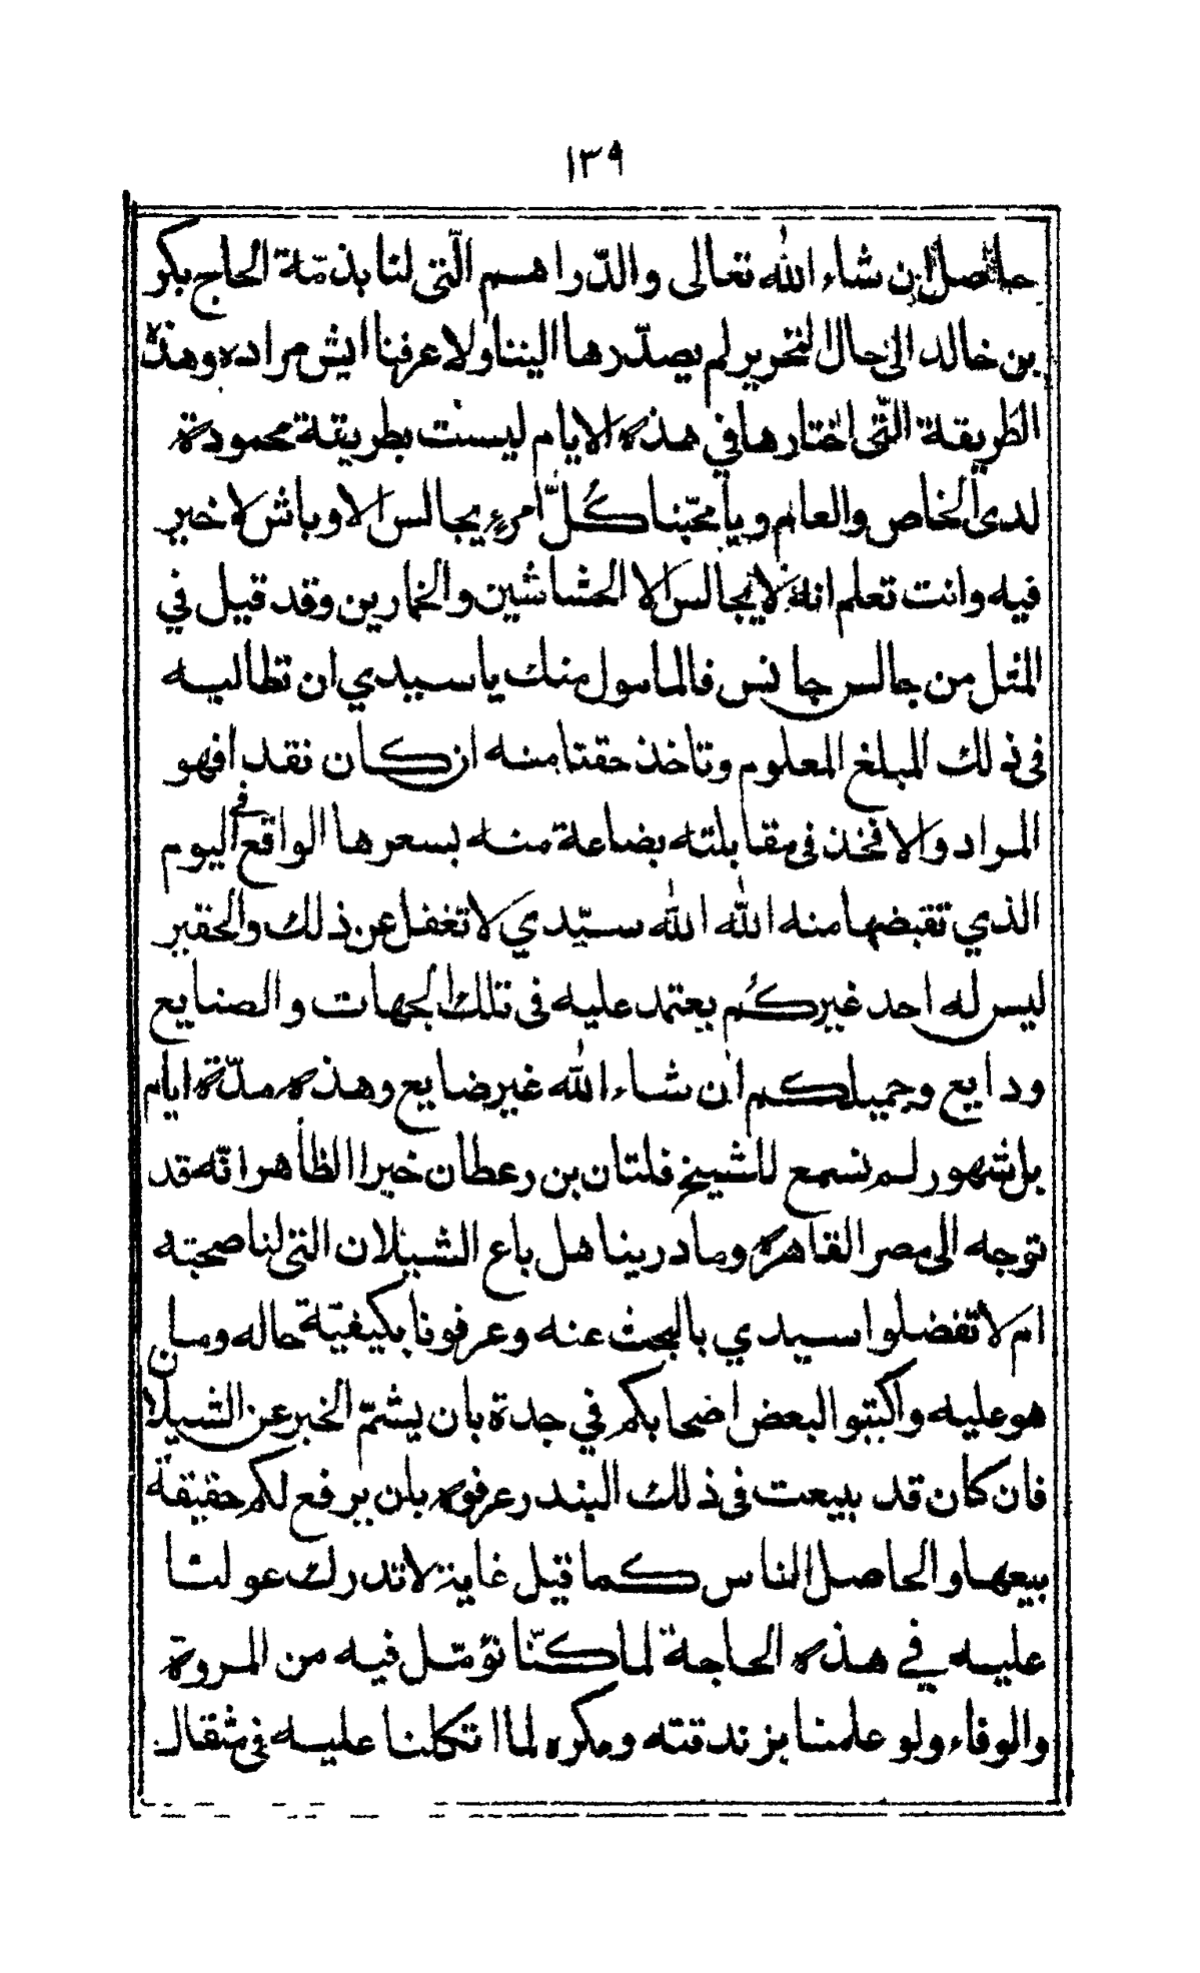 ١٣٩
حاصل ان شاء الله تعالى والدّراهم الّتى لنا بذمّة الحاج بكر
بن خالد الى حال التحرير لم يصدّرها الينا ولا عرفنا ايش مراده وهذه
الطريقة الّتى اختارها في هذه الايام ليست بطريقة محمودة
لدى الخاص والعام ويا محبّنا كُلّ امرءٍ يجالس الاوباش لا خير
فيه وانت تعلم انه لا يجالس الا الحشاشين والخمارين وقد قيل في
المثل من جالس جانس فالمأسول منك يا سيدي ان تطالبه
فى ذلك المبلغ المعلوم وتاخذ حقنا منه ان كان نقدا فهو
المراد والا فخذ فى مقابلته بضاعة منه بسعرها الواقع في اليوم
الذي تقبضها منه الله الله سيّدي لا تغفل عن ذلك والحقير
ليس له احد غيركُم يعتمد عليه فى تلك الجهات والصنايع
ودايع وجميلكم ان شاء الله غير ضايع وهذه مدّة ايام
بل شهور لم نسمع للشيخ فلتان بن رعطان خبرا الظاهر انّه قد
توجه الى مصر القاهرة وما درينا هل باع الشيلان التى لنا صحبته
ام لا تفضلوا سيدي بالبحث عنه وعرفونا بكيفيّة حاله وما
هو عليه واكتبوا لبعض اصحابكم في جدة بان يشمّ الخبر عن الشيلان
فان كان قد بيعت فى ذلك البندر عرفوه بان يرفع لكم حقيقة
بيعها والحاصل الناس كما قيل غاية لا تدرك عولنا
عليه في هذه الحاجة لما كنّا نؤمّل فيه من المروة
والوفاء ولو علمنا بزندقته ومكره لما اتكلنا عليه فى مثقال